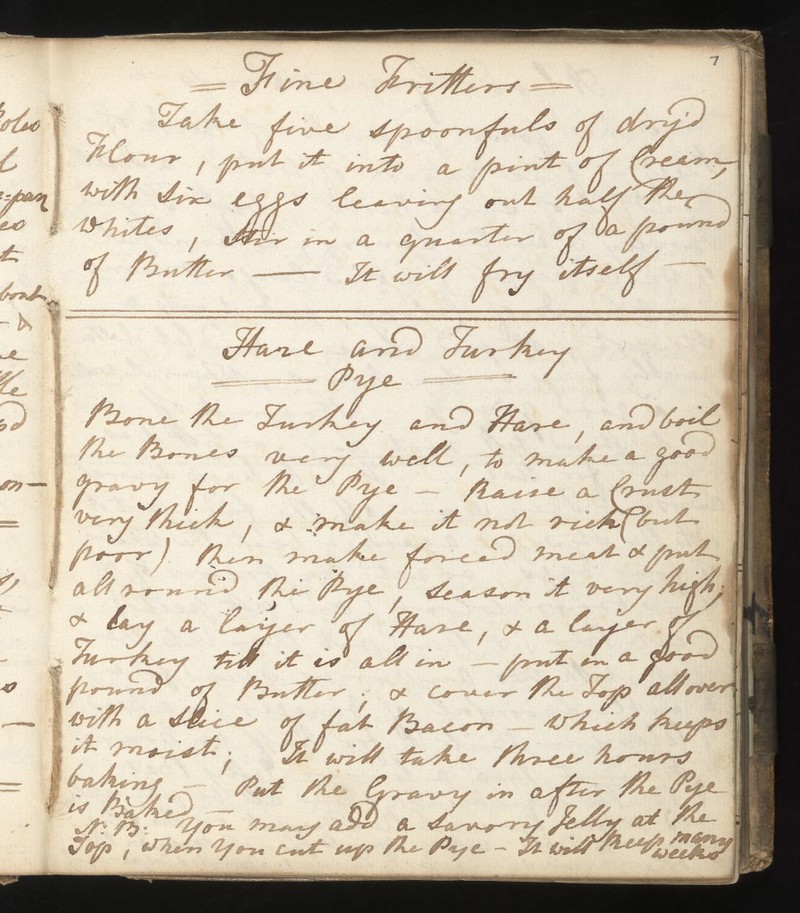 7
= Fine Fritters =
Take five spoonfuls of dry'd
Flour, put it into a pint of Cream,
with Six eggs leaving out half the
Whites, Stir in a quarter of a pound
of Butter — It will fry itself —
Hare and Turkey
Pye
Bone the Turkey and Hare, and boil
the Bones very well, to make a good
gravy for the Pye — Raise a Crust
very thick, & make it not rich (but
poor) then make forced meat & put
all round the Pye, season it very high;
& lay a layer of Hare, & a layer of
Turkey till it is all in — put in a good
pound of Butter; & cover the Top all over
with a Slice of fat Bacon — which keeps
it moist; It will take three hours
baking — Put the Gravy in after the Pye
is Baked —
N:B: You may add a Savory Jelly at the
Top, when You cut up the Pye — It will keep many
weeks